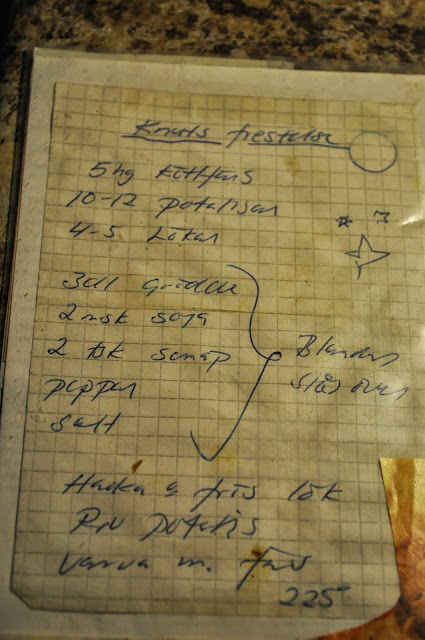 Knuts frestelse
5 hg köttfärs
10-12 potatisar
4-5 lökar
3 dl grädde
2 msk soja
2 tsk senap
peppar
salt
Blandas
slås över
Hacka & fräs lök
Riv potatis
varva m. färs
225°